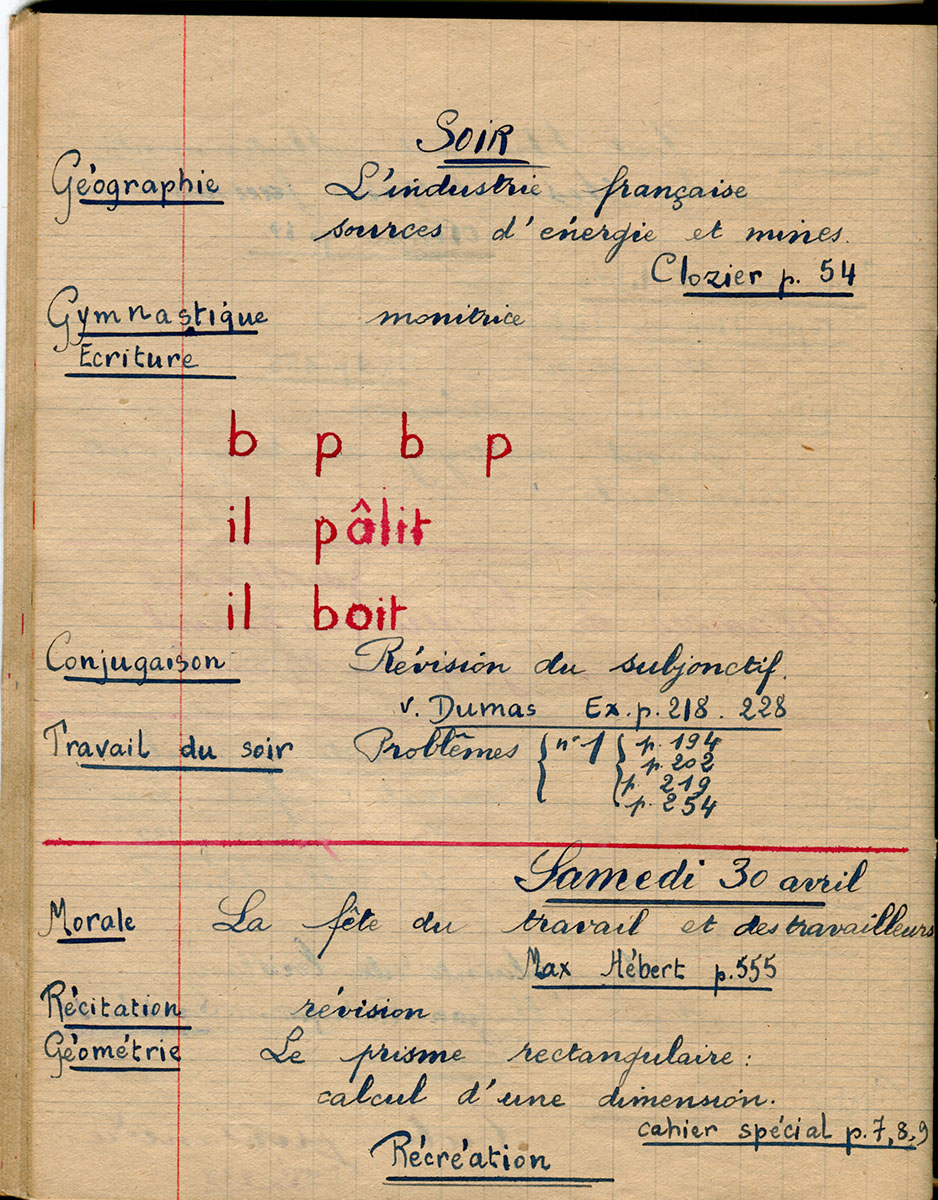 SOIR
Géographie L'industrie française
sources d'énergie et mines.
Clozier p. 54
Gymnastique monitrice
Ecriture
b p b p
il pâlit
il boit
Conjugaison Révision du subjonctif.
v. Dumas Ex. p. 218. 228
Travail du soir Problèmes { n° 1 { p. 194
p. 202
p. 219
p. 254
Samedi 30 avril
Morale La fête du travail et des travailleurs
Max Hébert p. 555
Récitation révision
Géométrie Le prisme rectangulaire :
calcul d'une dimension.
cahier spécial p. 7, 8, 9
Récréation